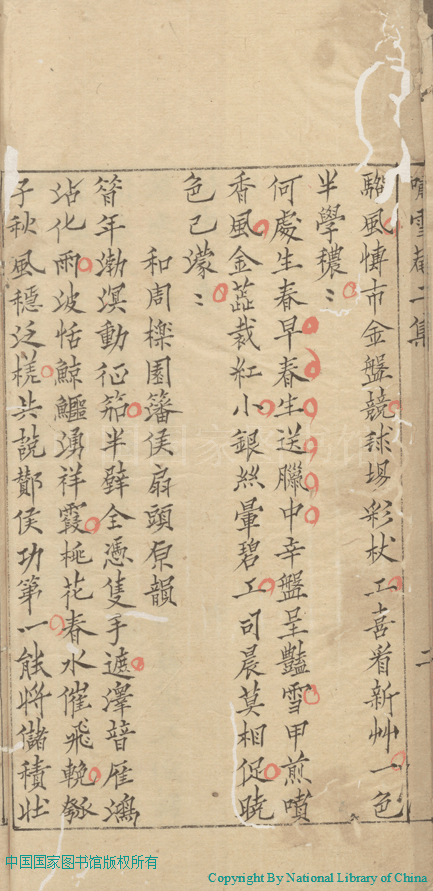 嘯雪菴二集
二
駘風愽市金盤競毬場彩杖工喜看新艸一色
半學穠〻
何處生春早春生送臘中辛盤呈豔雪甲煎噴
香風金蕋裁紅小銀絲暈碧工司晨莫相促曉
色已濛〻
和周櫟園籓侯扇頭原韻
笴年渤溟動征笳半壁全憑隻手遮澤暗雁鴻
沾化雨波恬鯨鱷湧祥霞桃花春水催飛輓黎
子秋風穩泛槎共說酇侯功第一能將儲積壯
中国国家图书馆版权所有
Copyright By National Library of China